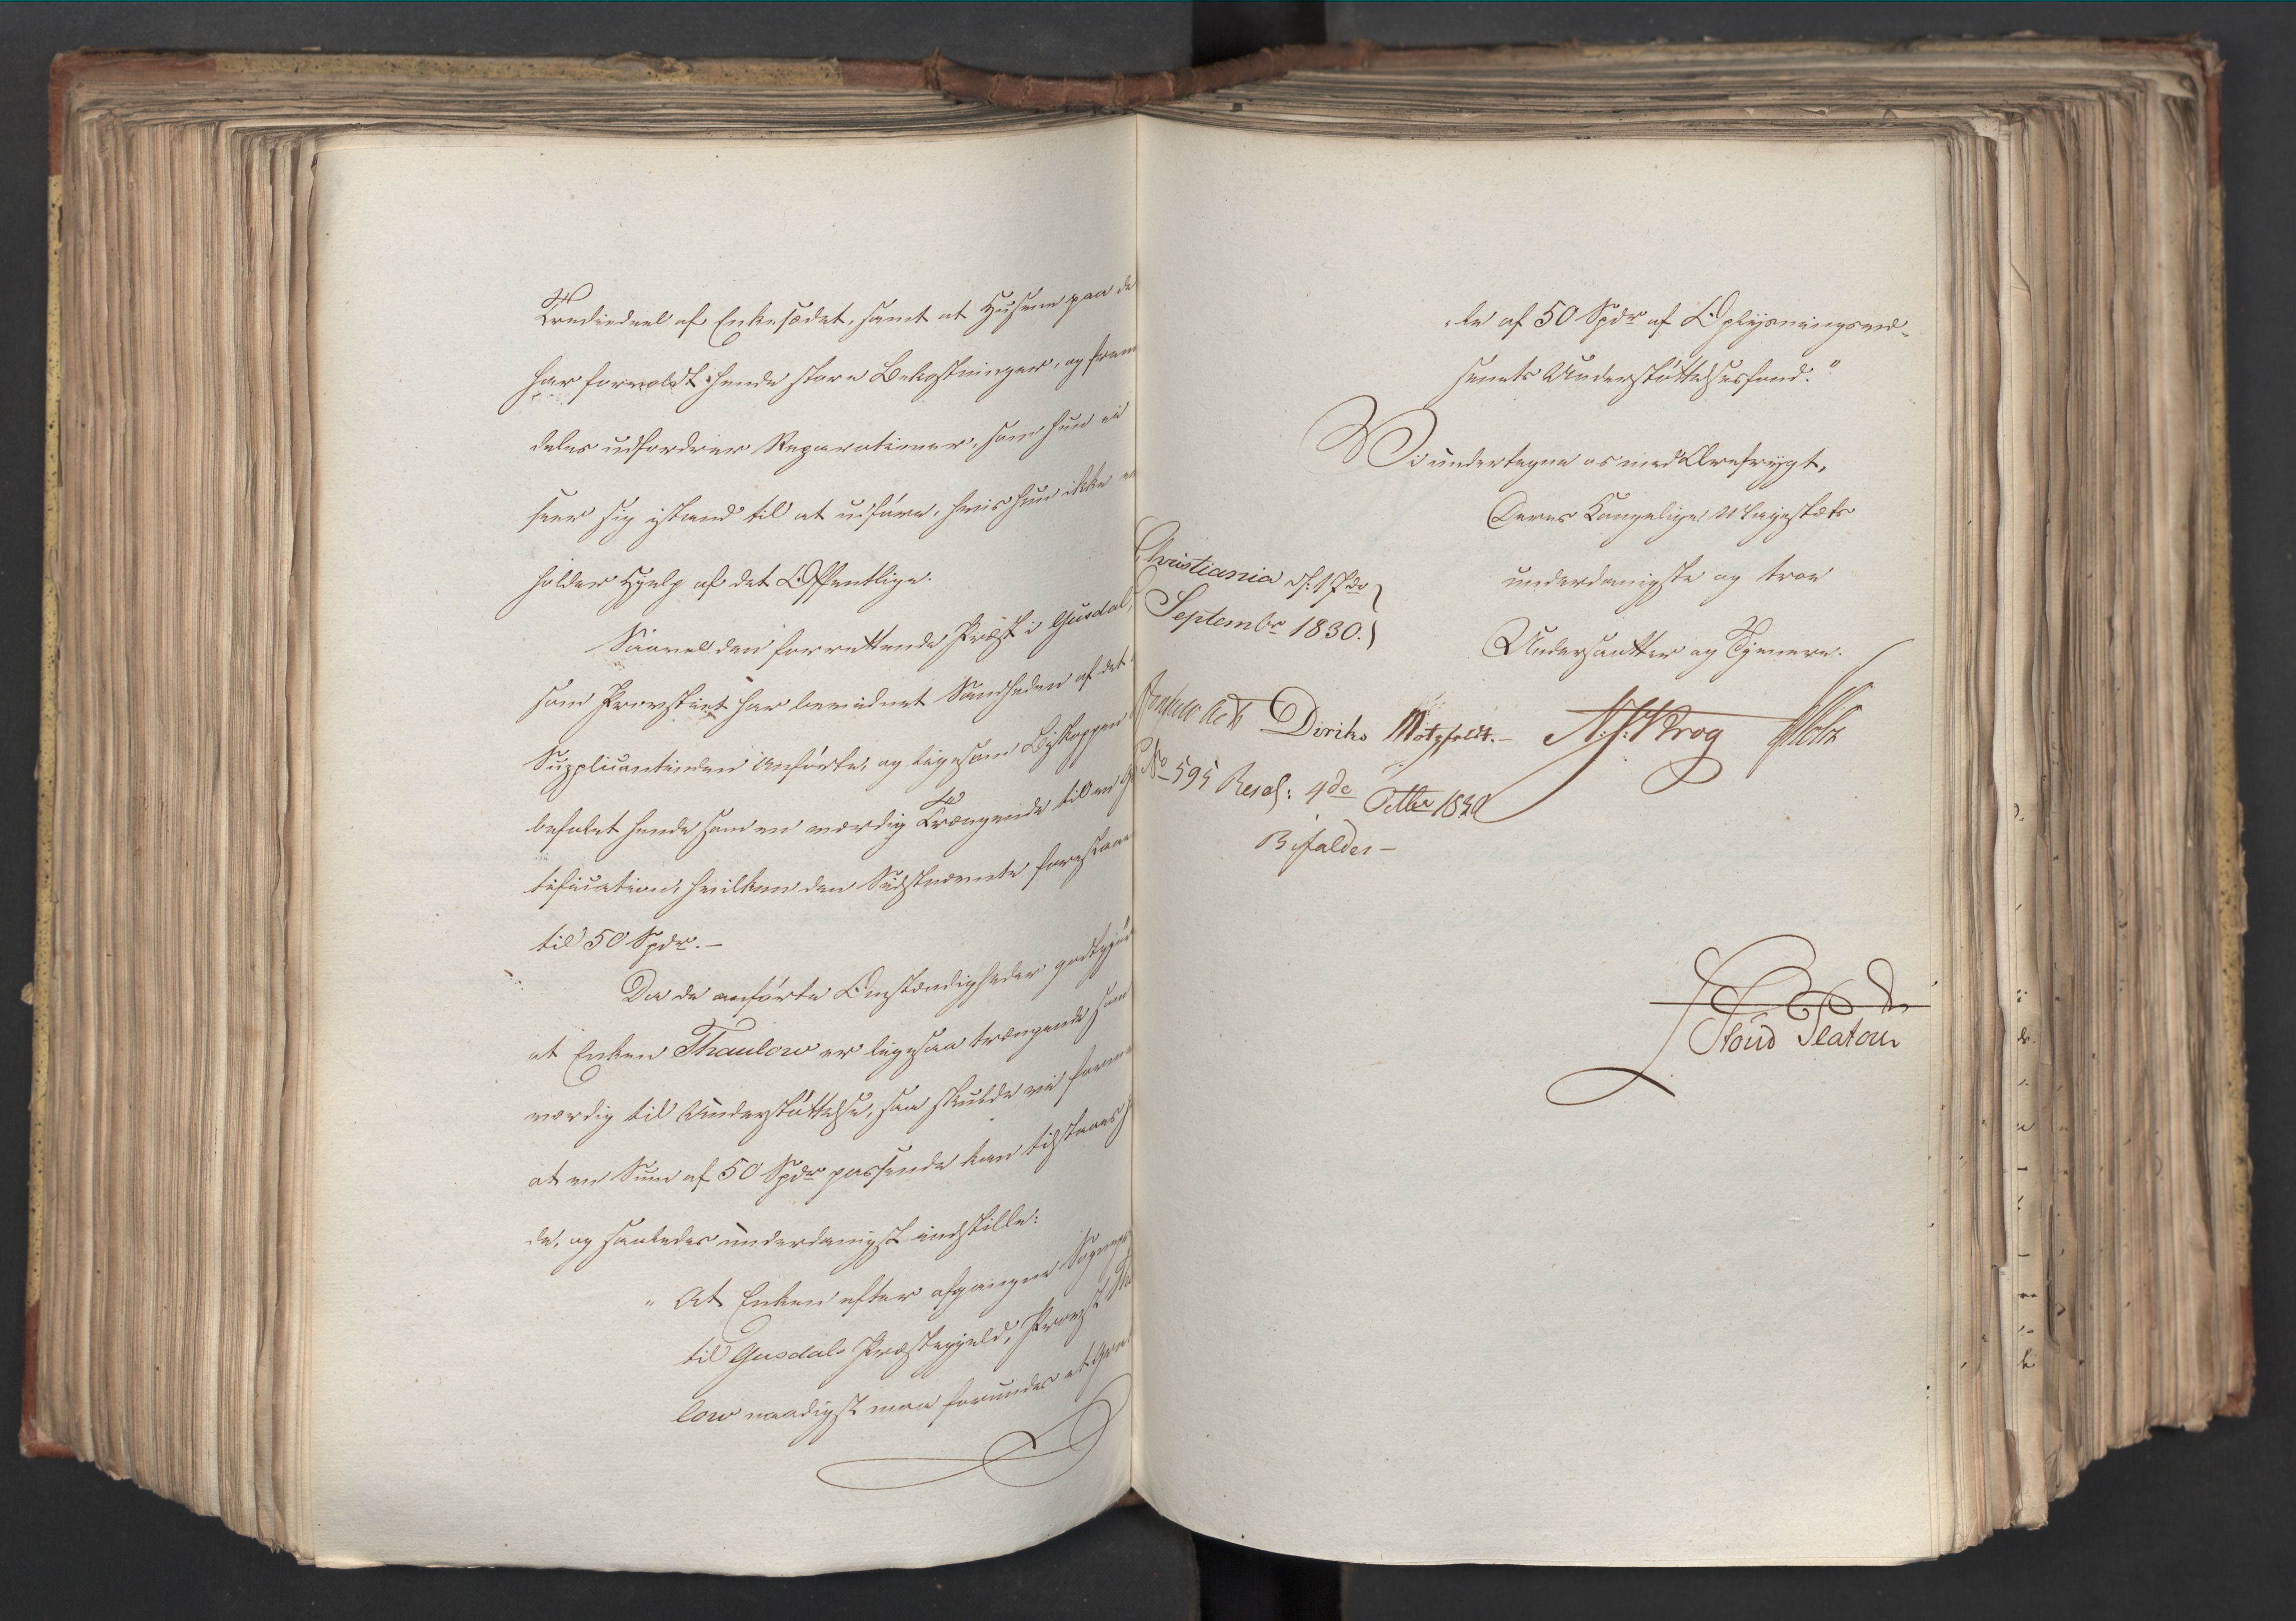 Trediedeel af Enkesædet, samt at Husene paa de
har forvoldt hende store Bekostninger, og frem
deles udfordrer Reparationer, som hun ei
seer sig istand til at udføre, hvis hun ikke er
holder Hjelp af det Offentlige.
Saavel den forrettende Præst i Gusdal,
som Provstiet har bevidnet Sandheden af det
Supplicantinden Anførte, og ligesom Biskoppen
befalet hende som en værdig Trængende til en G
tification, hvilken den Sidstnævnte foreslaaer
til 50 Spdr. —
Da de anførte Omstændigheder godtgjør
at Enken Thaulow er ligesaa trængende som
værdig til Understøttelse, saa skulde vi forme
at en Sum af 50 Spdr passende kan tilstaaes h
de, og saaledes underdanigst indstille:
" At Enken efter afgangne Sognepr
til Gusdals Præstegjeld, Provst Tha
low naadigst maa forundes et Gra
le af 50 Spdr af Oplysningsvæ-
senets Understøttelsesfond."
Vi undertegne os med Ærefrygt,
Deres Kongelige Majestæts
underdanigste og troe
Undersaatter og Tjenere.
Christiania d: 17de
Septembr 1830.
Diriks Motzfeldt. — N. J. Krog Holst
No 595 Resol: 4de Octbr 1830
Bifaldes —
Stoud Platou